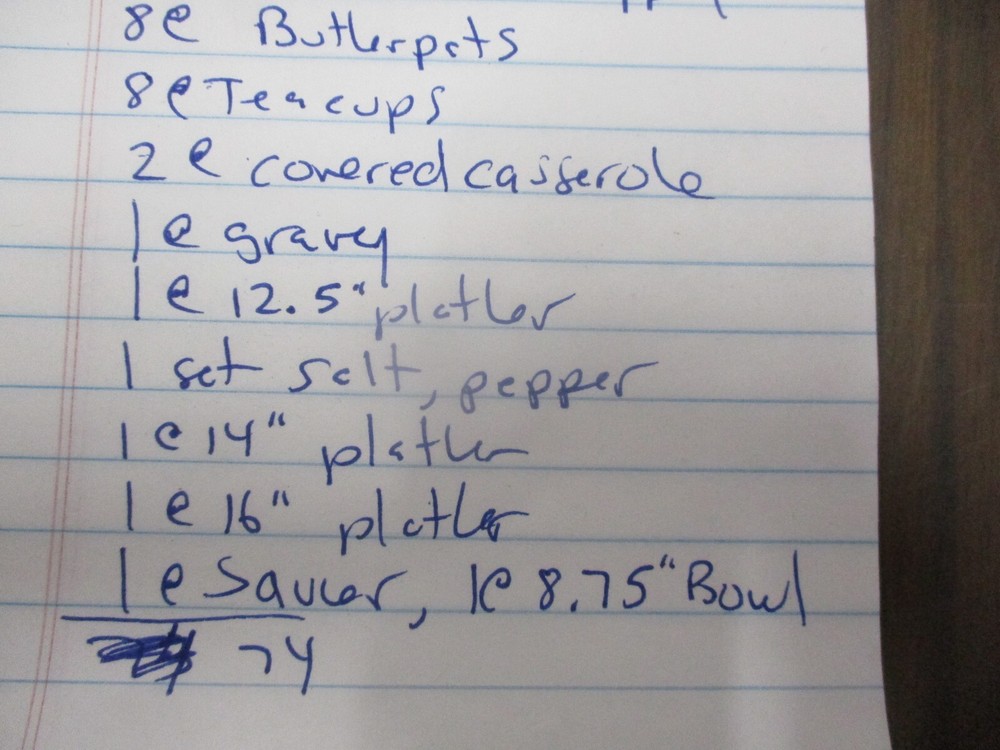 8@ Butterpats
8@ Teacups
2@ covered casserole
1@ gravey
1@ 12.5" platter
1 set salt, pepper
1@ 14" platter
1@ 16" platter
1@ Saucer, 1@ 8.75" Bowl
74